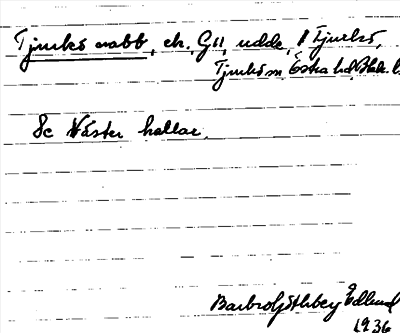 Tjurkö nabb, ek. G11, udde, å Tjurkö,
Tjurkö sn Östra hd, Blek. l.
Se Väster hallar.
Barbro Göthberg Edlund
1936